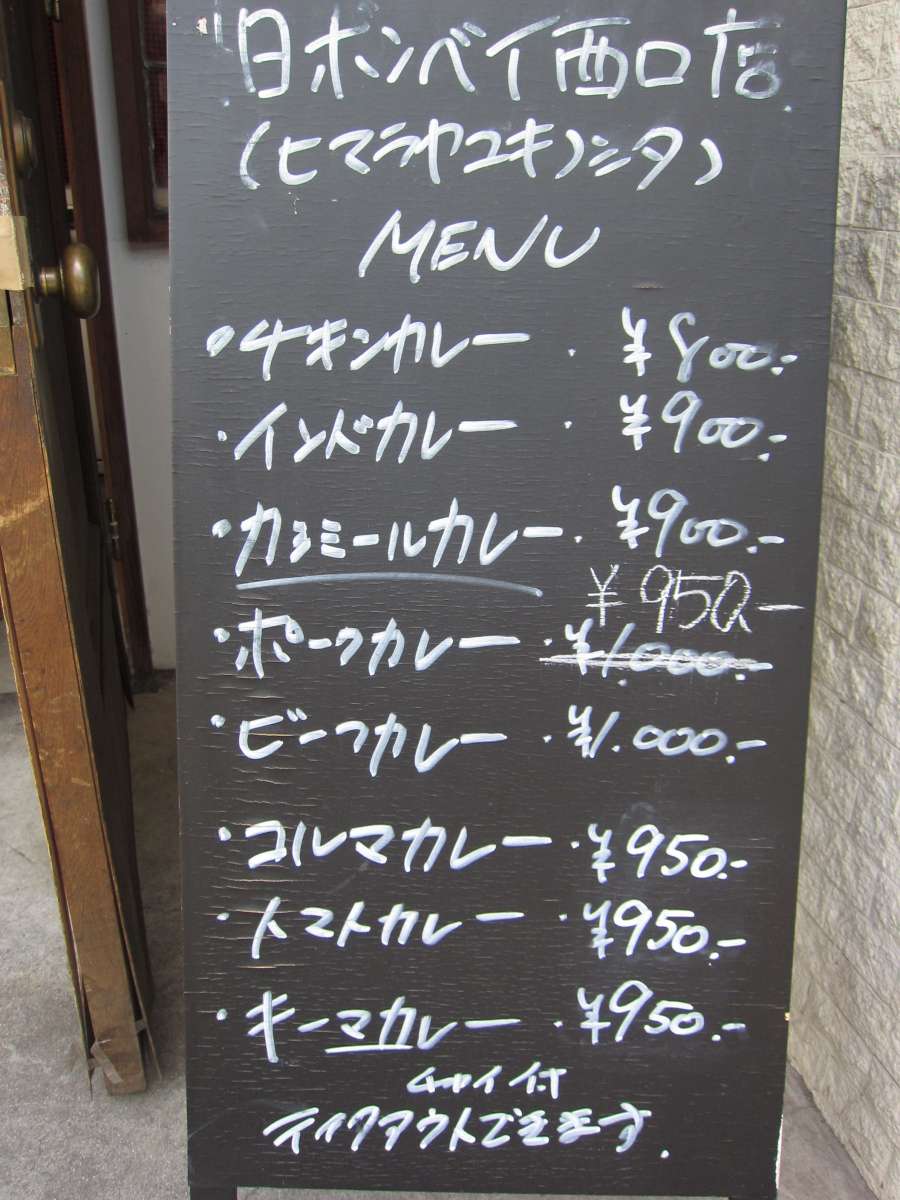 旧ボンベイ西口店
(ヒマラヤユキノシタ)
MENU
・チキンカレー ・ ¥800.-
・インドカレー ・ ¥900.-
・カシミールカレー ・ ¥900.-
¥950.-
・ポークカレー ・ ¥1.000.-
・ビーフカレー ・ ¥1.000.-
・コルマカレー ・ ¥950.-
・トマトカレー ・ ¥950.-
・キーマカレー ・ ¥950.-
チャイ付
テイクアウトできます.